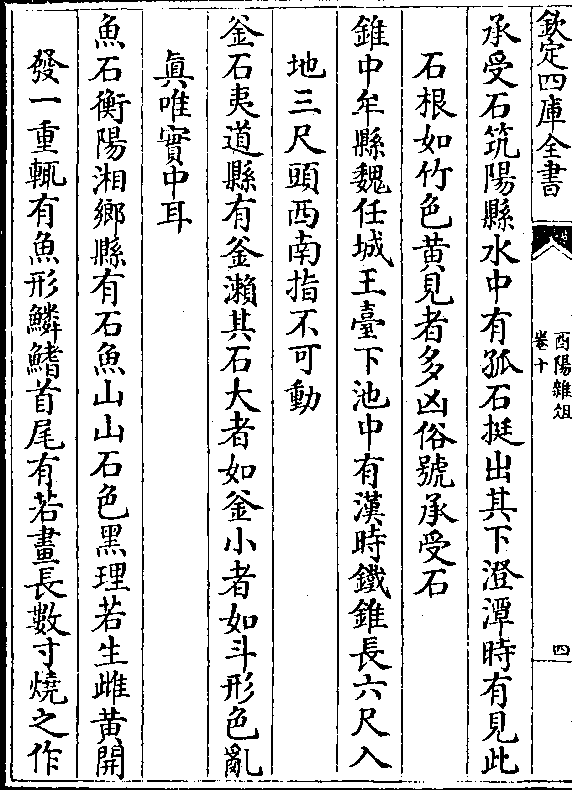 欽定四庫全書
酉陽雜俎
卷十
四
承受石筑陽縣水中有孤石挺出其下澄潭時有見此
石根如竹色黄見者多凶俗號承受石
錐中牟縣魏任城王臺下池中有漢時鐵錐長六尺入
地三尺頭西南指不可動
釜石夷道縣有釜瀨其石大者如釜小者如斗形色亂
真唯實中耳
魚石衡陽湘鄉縣有石魚山山石色黑理若生雌黄開
發一重輒有魚形鱗鰭首尾有若畫長數寸燒之作